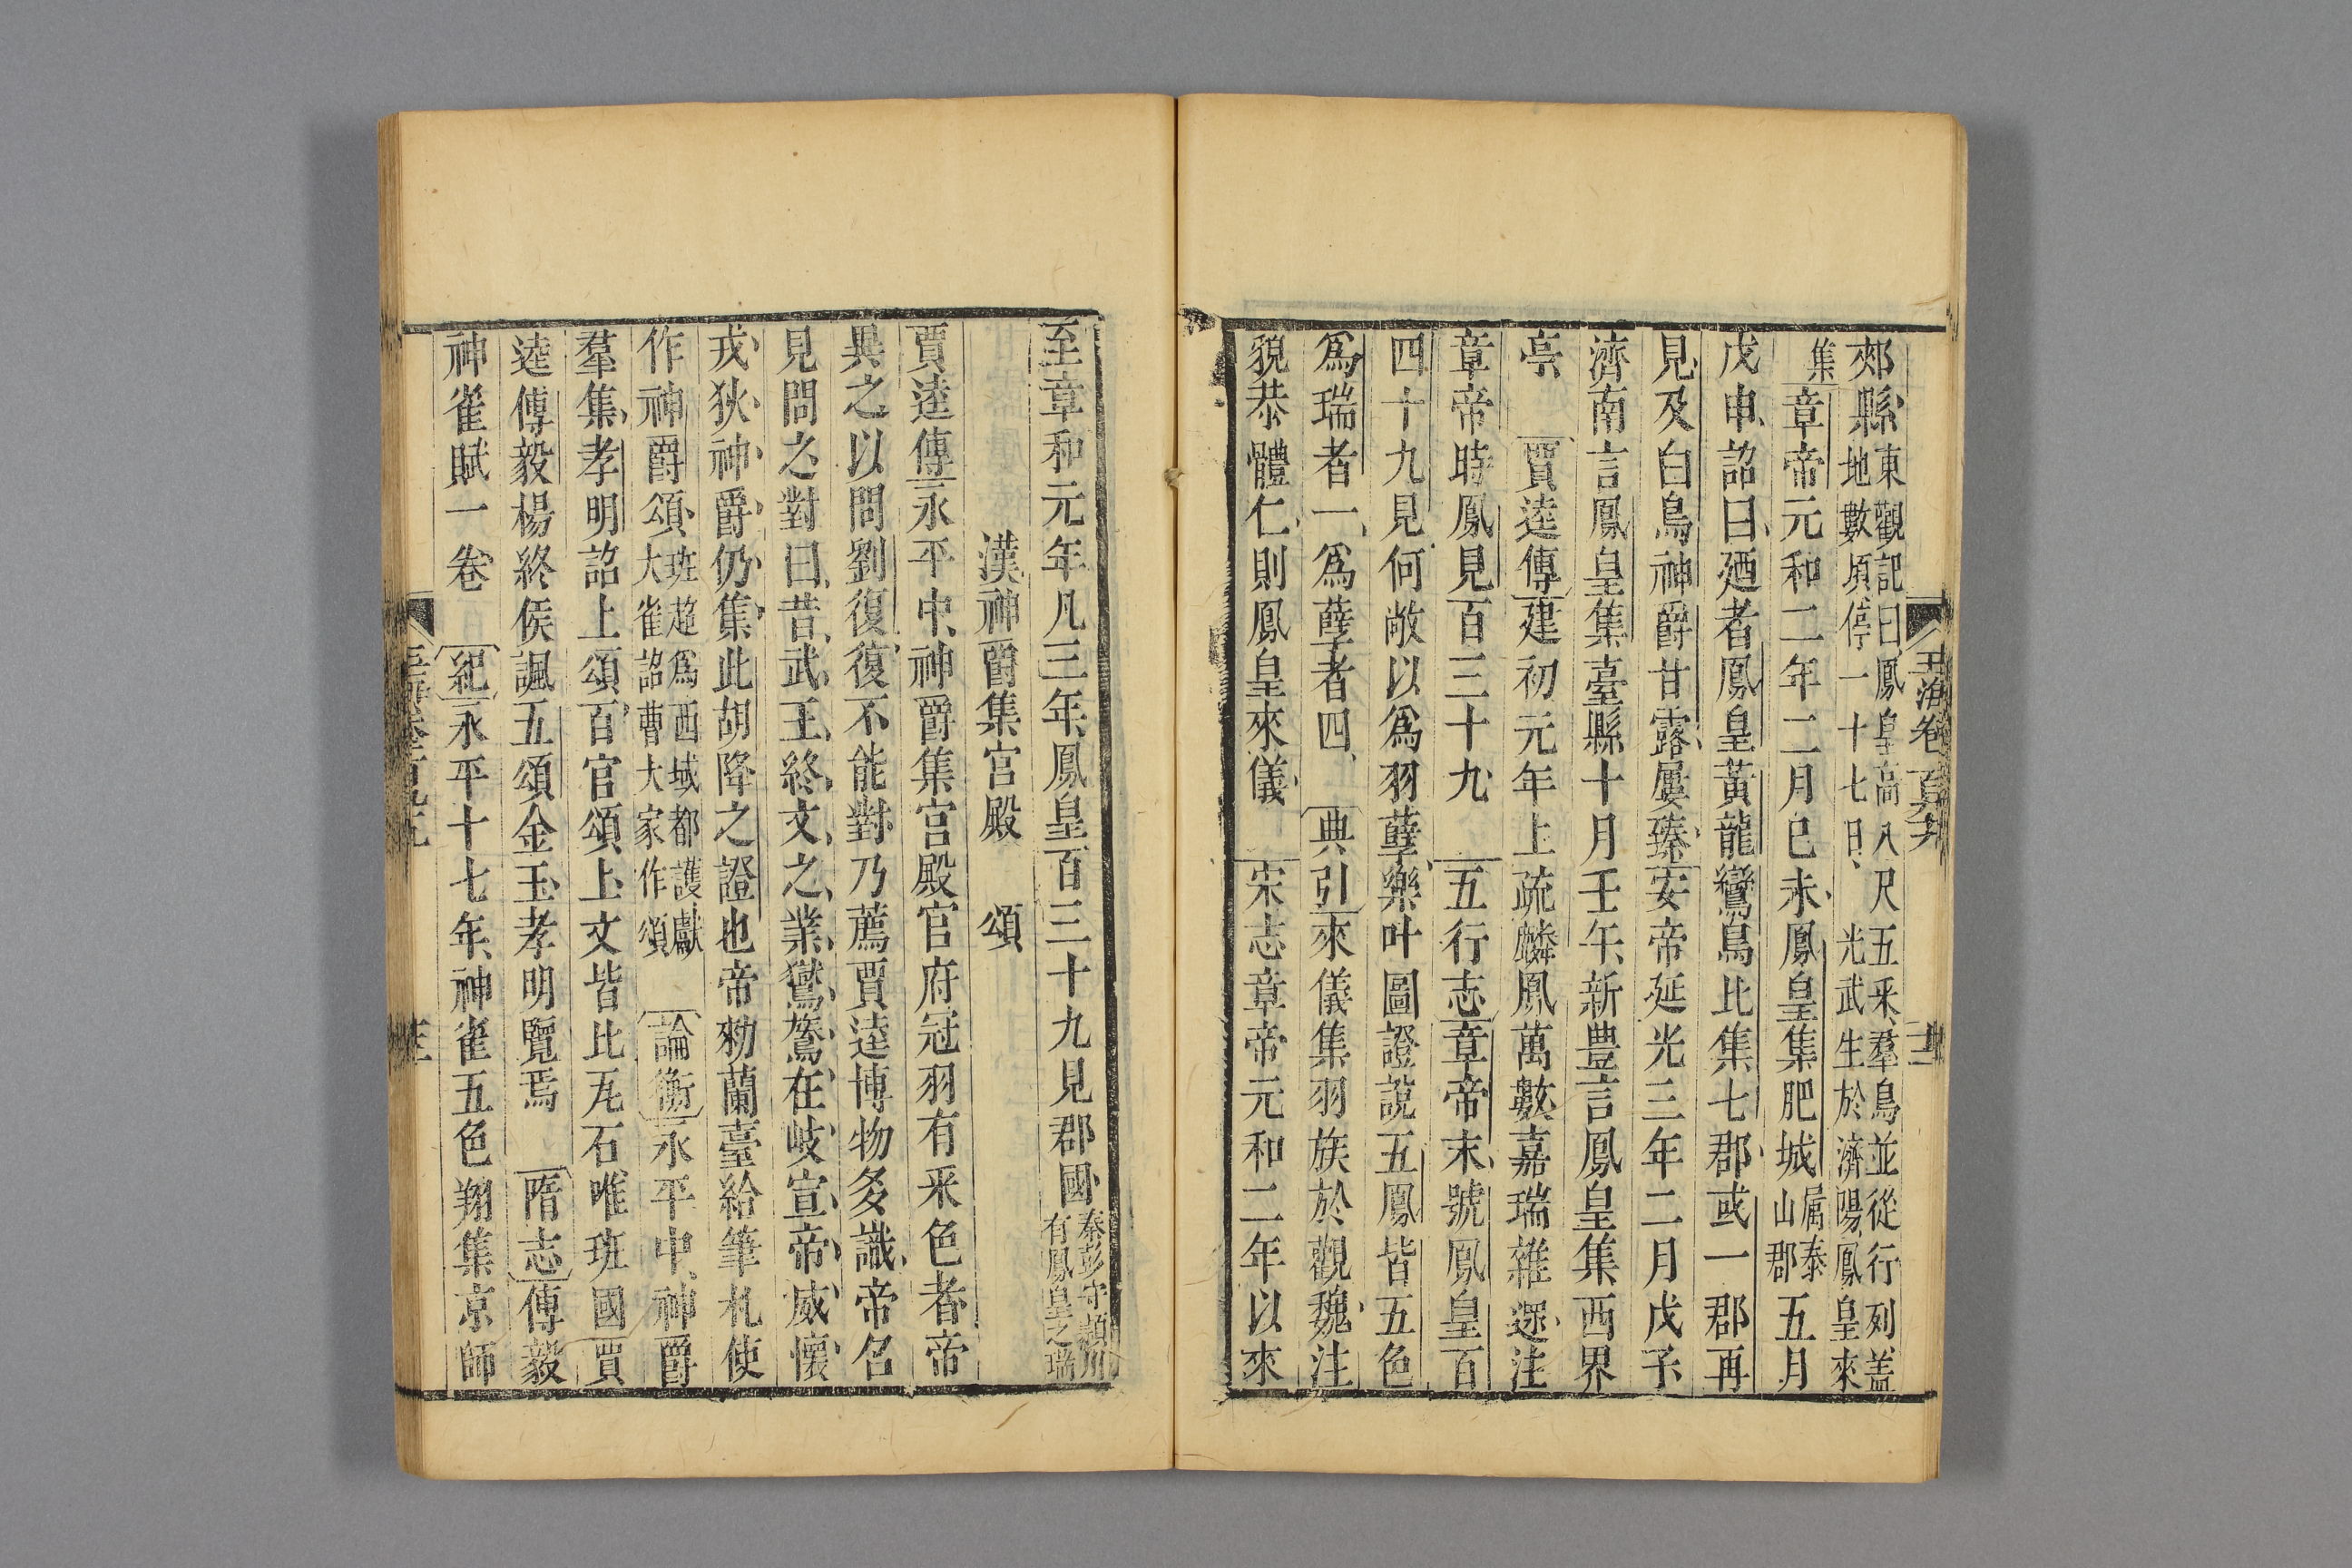 郟縣東觀記曰鳳皇高八尺五采羣鳥並從行列盖
地數頃停一十七日光武生於濟陽鳳皇來
集章帝元和二年二月巳未鳳皇集肥城属泰山郡五月
戊申詔曰廼者鳳皇黃龍鸞鳥比集七郡或一郡再
見及白烏神爵甘露屢臻安帝延光三年二月戊子
濟南言鳳皇集臺縣十月壬午新豊言鳳皇集西界
亭賈逵傳建初元年上疏麟鳳萬數嘉瑞雜遝注
章帝時鳳見百三十九五行志章帝末號鳳皇百
四十九見何敞以爲羽孽樂叶圖證說五鳳皆五色
爲瑞者一爲孽者四典引來儀集羽族於觀魏注
貌恭體仁則鳳皇來儀宋志章帝元和二年以來
玉海卷百九九
至章和元年凡三年鳳皇百三十九見郡國秦彭守潁川有鳳皇之瑞
漢神爵集宮殿頌
賈逵傳永平中神爵集宮殿官府冠羽有采色者帝
異之以問劉復復不能對乃薦賈逵博物多識帝召
見問之對曰昔武王終文之業鸑鷟在岐宣帝威懷
戎狄神爵仍集此胡降之證也帝勑蘭臺給筆札使
作神爵頌班超爲西域都護獻大雀詔曹大家作頌論衡永平中神爵
羣集孝明詔上頌百官頌上文皆比瓦石唯班固賈
逵傅毅楊終侯諷五頌金玉孝明覽焉隋志傅毅
神雀賦一卷紀永平十七年神雀五色翔集京師